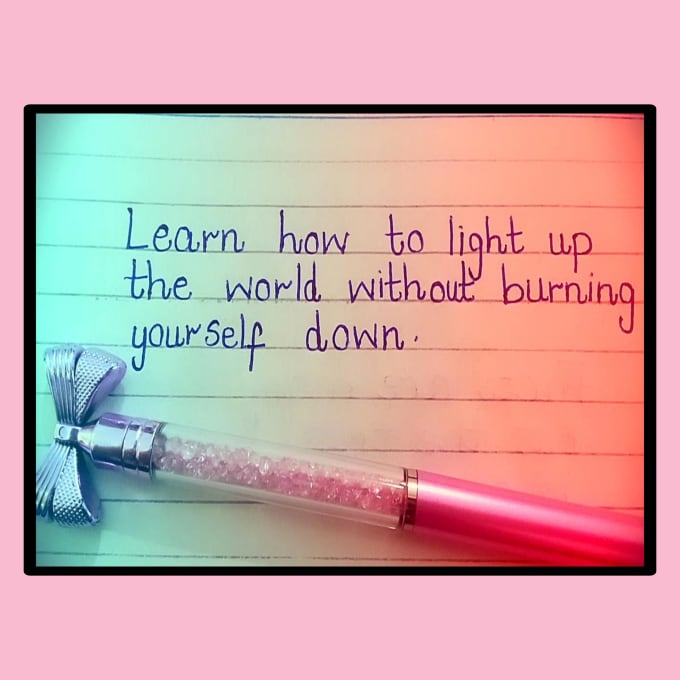 Learn how to light up
the world without burning
yourself down.